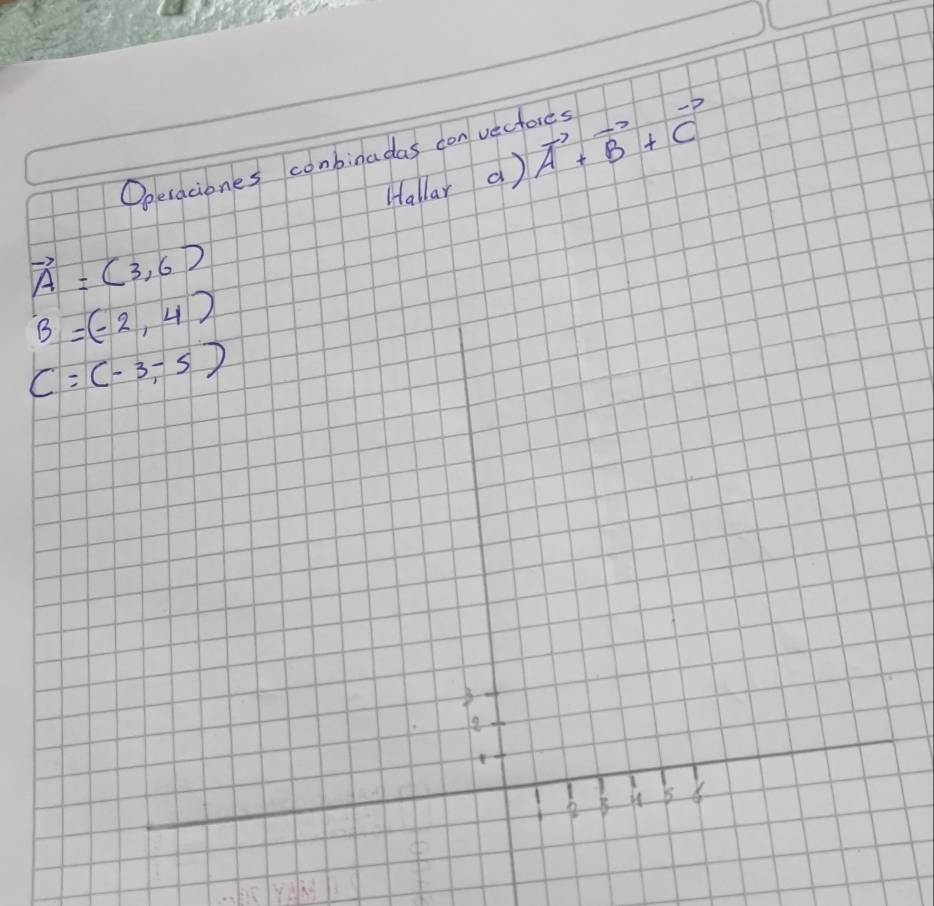 Operaciones conbinadas con vectores
Hallar a) A⃗ + B⃗ + C⃗
A⃗ = (3,6)
B = (-2, 4)
C = (-3,-5)
3
2
1
1 2 3 4 5 6